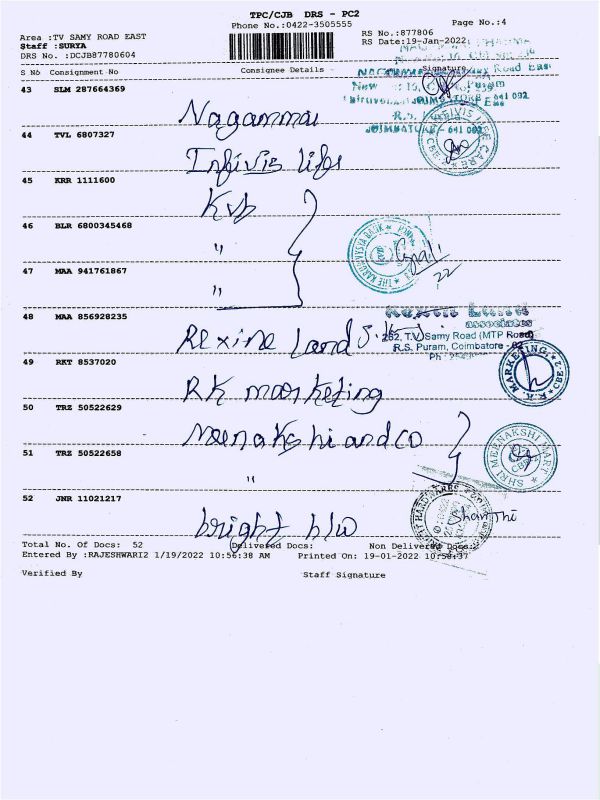 TPC/CJB DRS - PC2
Phone No.:0422-3505555
Page No.:4
Area :TV SAMY ROAD EAST
Staff :SURYA
DRS No. :DCJB87780604
RS No.:877806
RS Date:19-Jan-2022
S No Consignment No Consignee Details Signature
43 SLM 287664369 Nagammai
44 TVL 6807327 Infivis lifes
45 KRR 1111600 Kvb
46 BLR 6800345468 "
47 MAA 941761867 "
48 MAA 856928235 Rexine Land
49 RKT 8537020 RK marketing
50 TRZ 50522629 Meenakshi and co
51 TRZ 50522658 "
52 JNR 11021217 bright h/w
Road East
COIMBATORE - 641 002
THE KARUR VYSYA BANK
22
associates
252, T.V. Samy Road (MTP Road)
R.S. Puram, Coimbatore - 02
Ph
R.K. MARKETING, CBE-2
SHRI MEENAKSHI MART
Shanthi
Total No. Of Docs: 52 Delivered Docs: Non Delivered Docs:
Entered By :RAJESHWARI2 1/19/2022 10:56:38 AM Printed On: 19-01-2022 10:58:37
Verified By Staff Signature